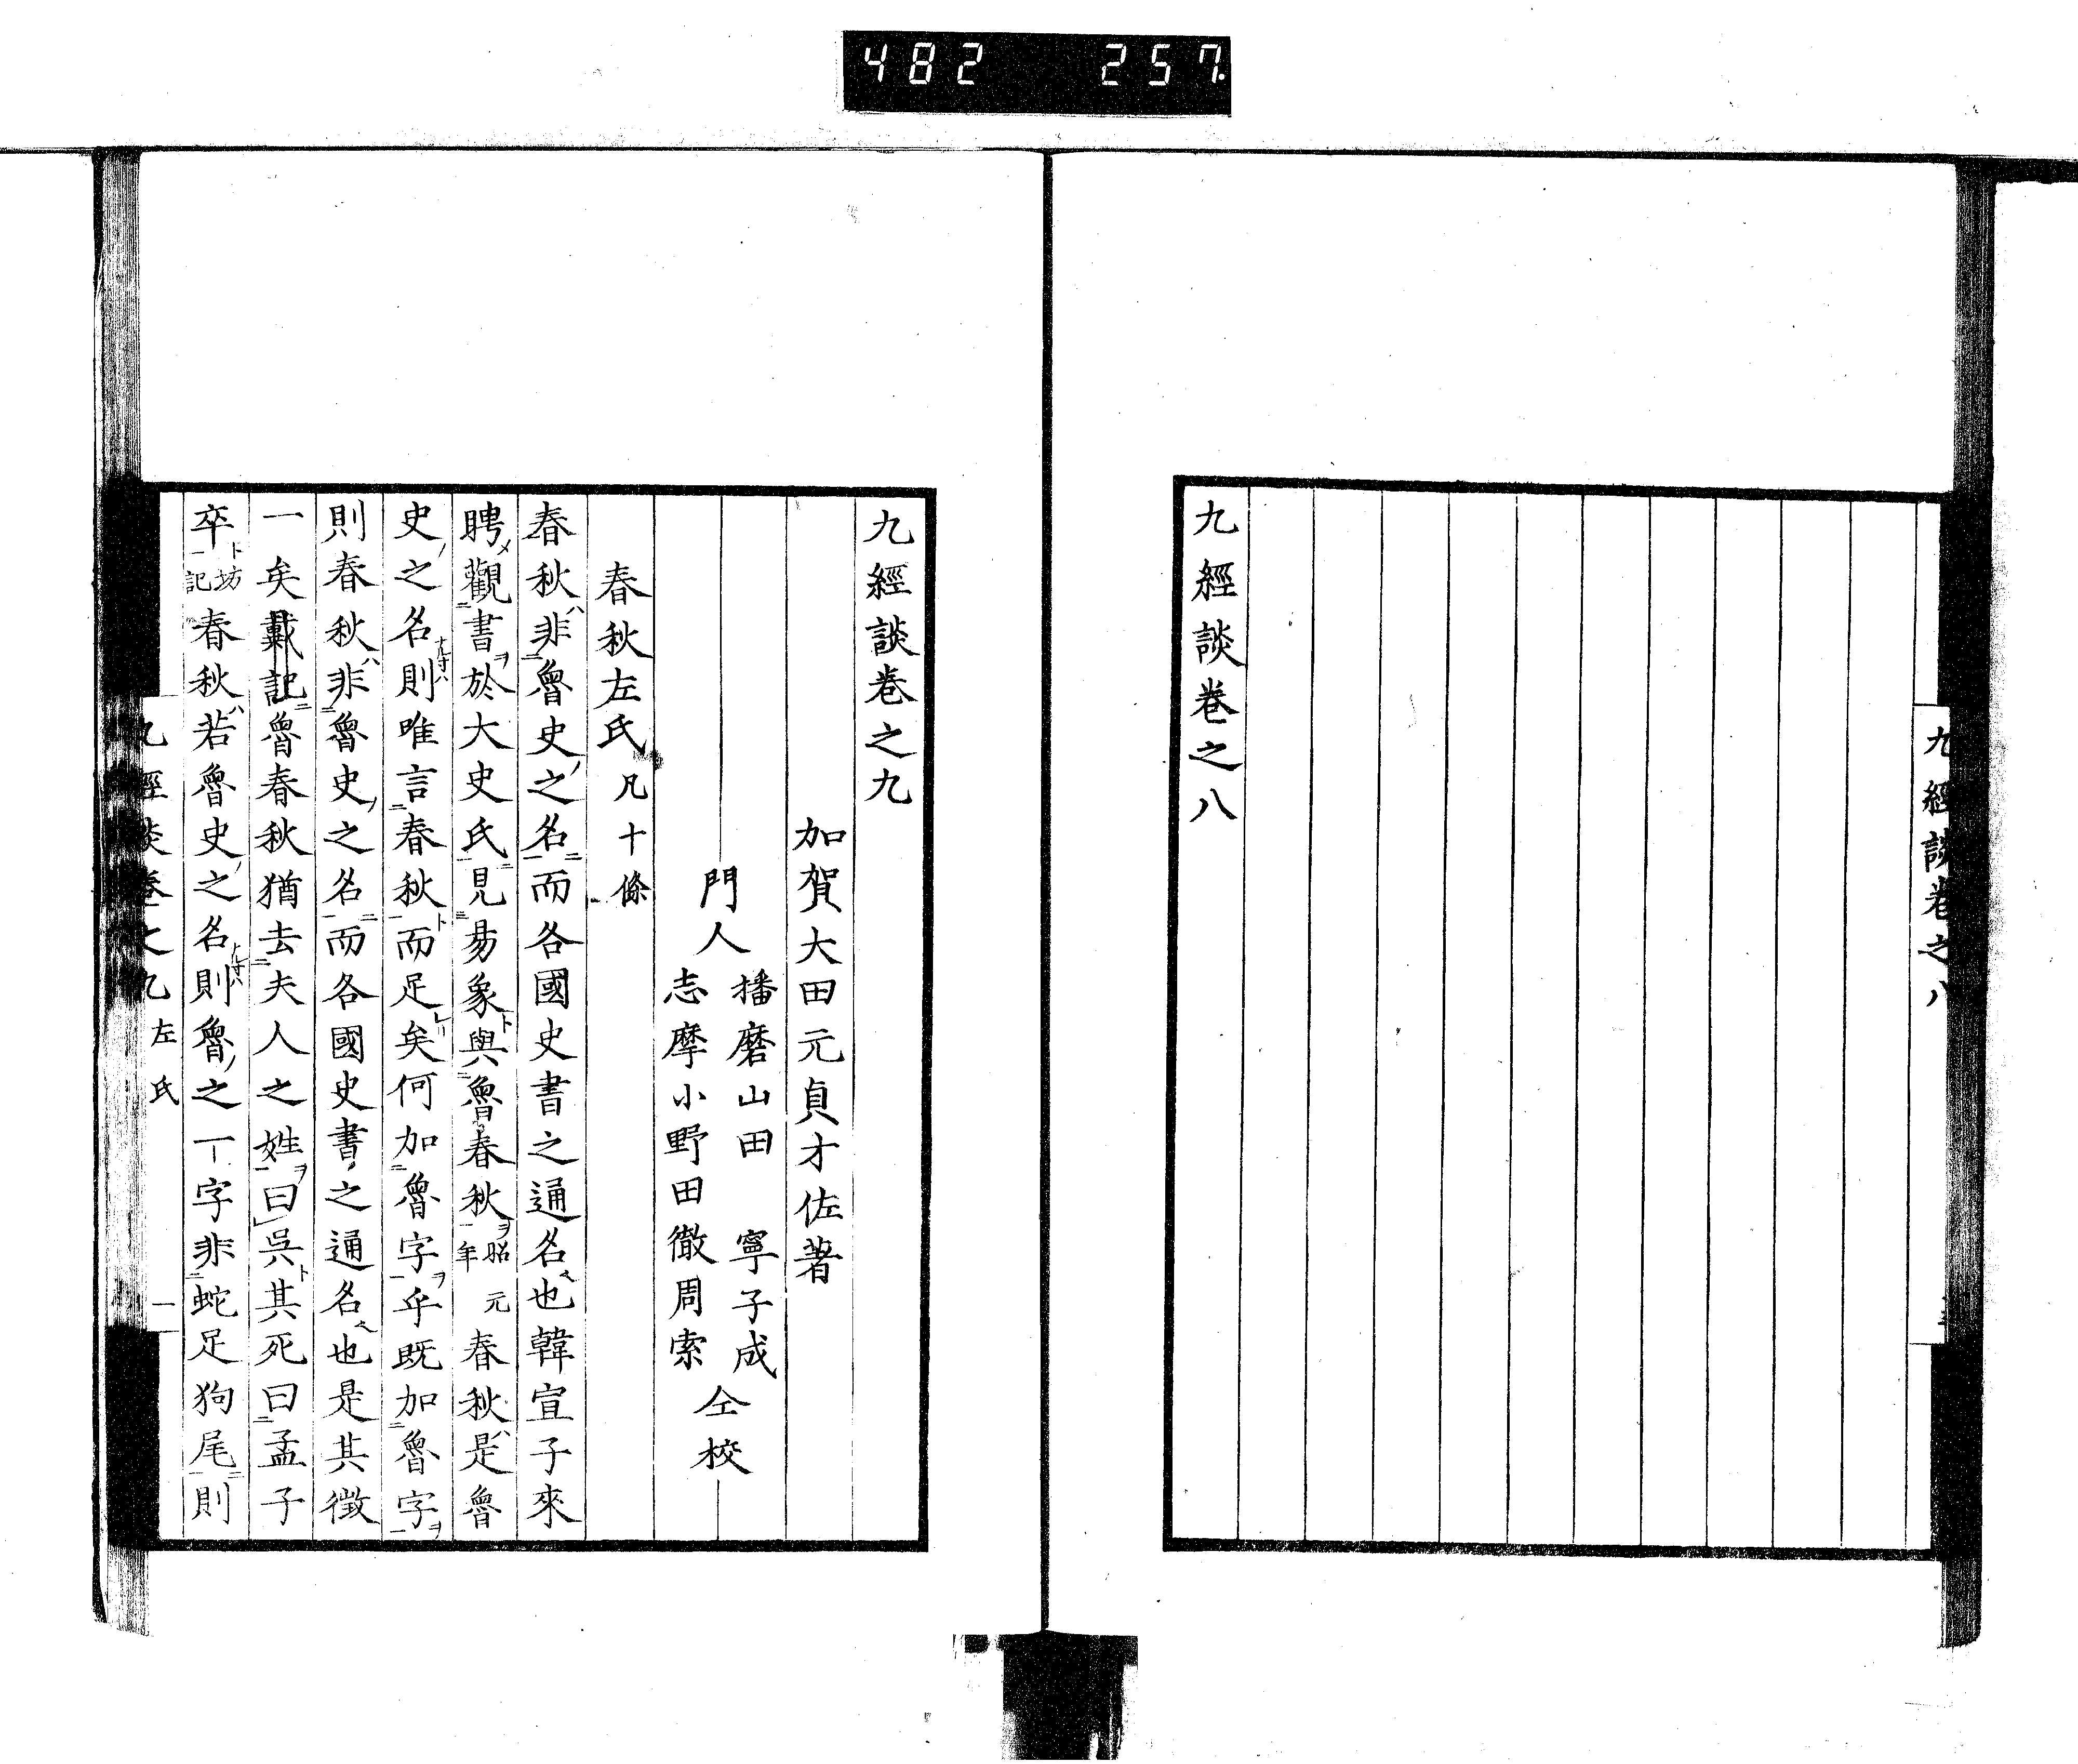 482 257.
九經談卷之八
九經談卷之八
九經談卷之九
加賀大田元貞才佐著
門人
播磨山田 寧子成
志摩小野田徹周索
仝校
春秋左氏凡十條
春秋非魯史之名而各國史書之通名也韓宣子來
聘觀書於大史氏見易象與魯春秋昭元年春秋是魯
史之名則唯言春秋而足矣何加魯字乎既加魯字
則春秋非魯史之名而各國史書之通名也是其徵
一矣戴記魯春秋猶去夫人之姓曰吳其死曰孟子
卒坊記春秋若魯史之名則魯之一字非蛇足狗尾則
九經談卷之九 左氏 一